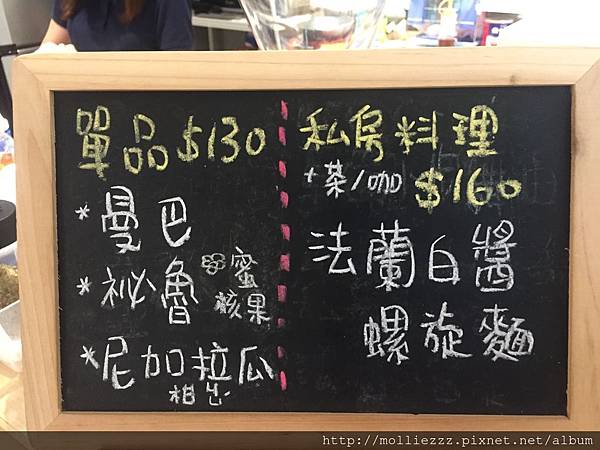 單品 $130
*曼巴
*祕魯 蜜
核果
*尼加拉瓜
私房料理
+茶/咖 $160
法蘭白醬
螺旋麵
http://molliezzz.pixnet.net/album